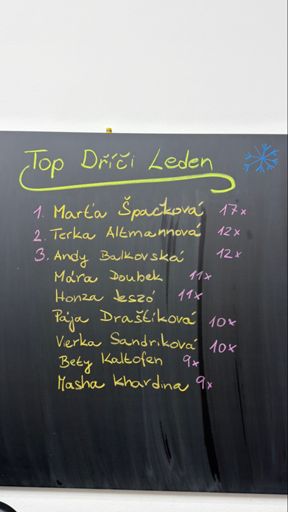 Top Dříči Leden
1. Marťa Špačková 17x
2. Terka Altmannová 12x
3. Andy Balkovská 12x
Mára Doubek 11x
Honza Jeszó 11x
Pája Draštíková 10x
Verka Sandriková 10x
Bety Kaltofen 9x
Masha Khardina 9x